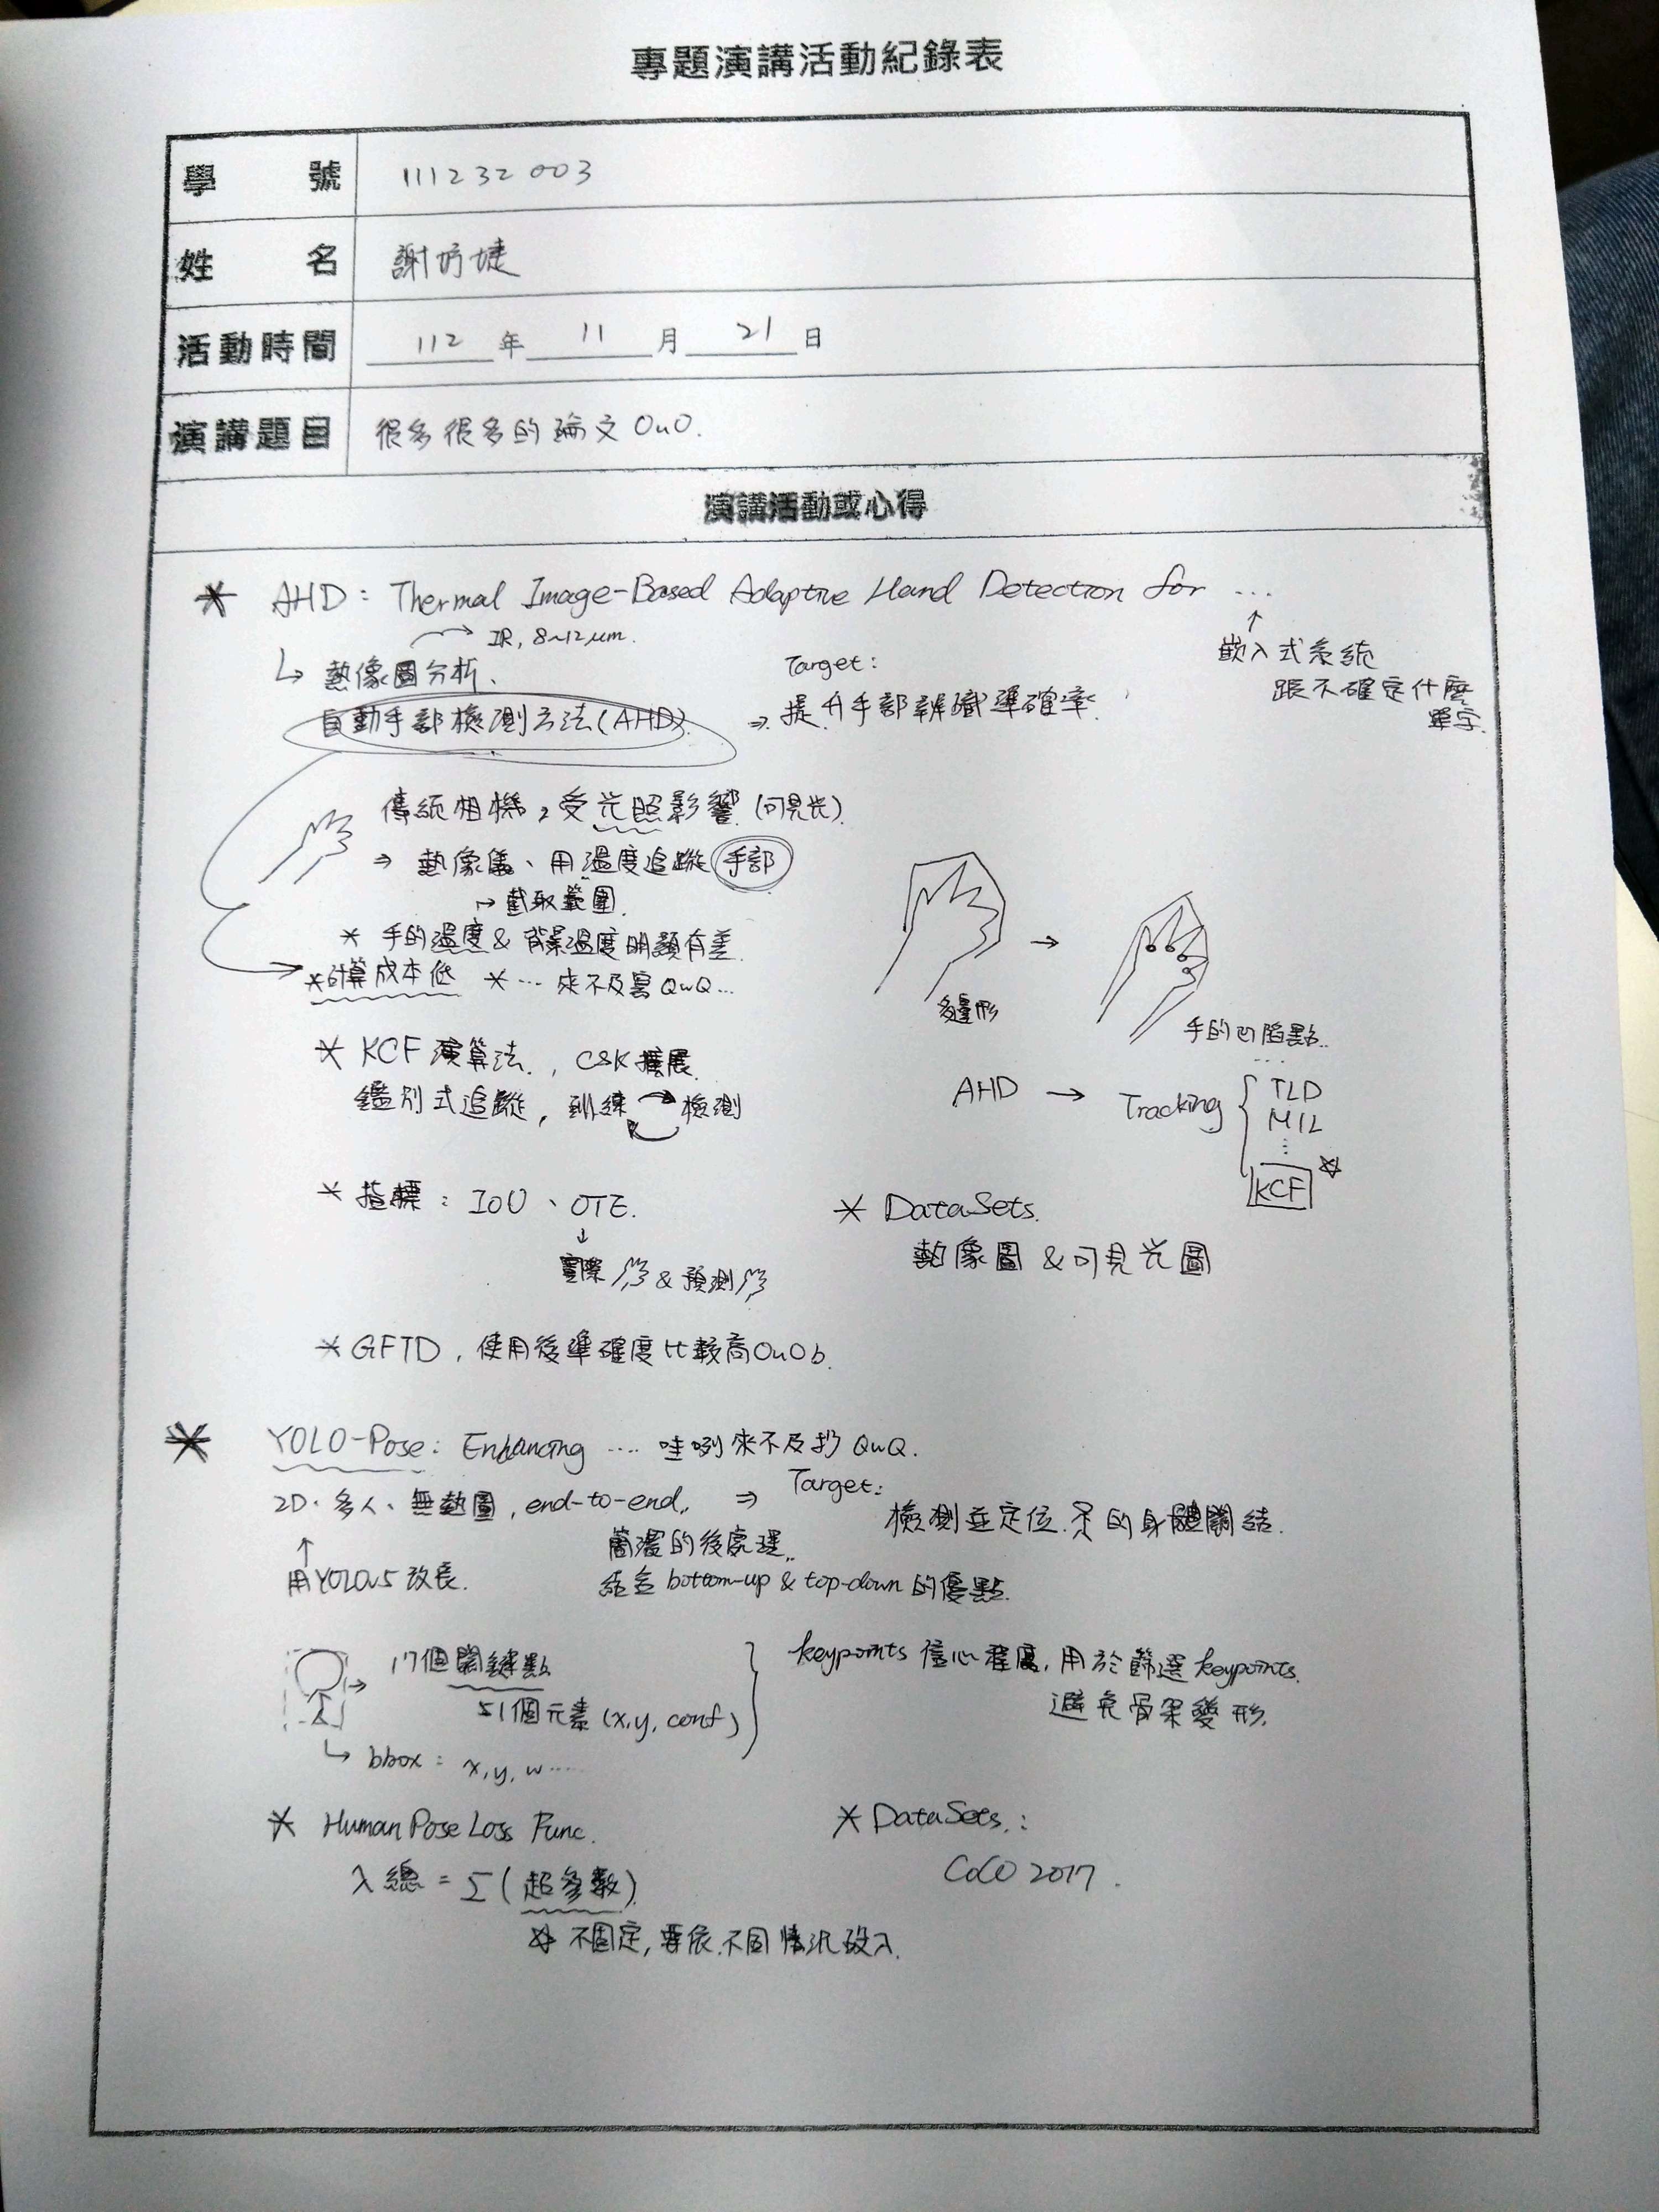 專題演講活動紀錄表
學號 111232003
姓名 謝妤婕
活動時間 112 年 11 月 21 日
演講題目 很多很多的論文 OuO.
演講活動或心得
* AHD: Thermal Image-Based Adaptive Hand Detection for ...
IR, 8~12μm.
↑
嵌入式系統
跟不確定什麼
單字.
↳ 熱像圖分析、
自動手部檢測方法(AHD).
Target:
⇒ 提升手部辨識準確率.
傳統相機,受光照影響(可見光).
⇒ 熱像儀、用溫度追蹤手部
→ 截取範圍.
* 手的溫度 & 背景溫度明顯有差.
*計算成本低 * ... 來不及寫QwQ...
多邊形
→
手的凹陷點..
* KCF 演算法., CSK擴展.
鑑別式追蹤, 訓練 檢測
AHD → Tracking
...
TLD
MIL
⋮
KCF ☆
* 指標: IoU、OTE.
↓
實際 & 預測
* DataSets.
熱像圖 & 可見光圖
* GFTD, 使用後準確度比較高OuOb.
* YOLO-Pose: Enhancing .... 哇咧來不及抄QwQ.
2D、多人、無熱圖, end-to-end,
⇒ Target:
檢測並定位.的身體關結.
簡潔的後處理..
↑
用YOLOv5改良.
結合 bottom-up & top-down 的優點.
→ 17個關鍵點
51個元素 (x,y, conf)
↳ bbox: x,y,w....
keypoints 信心程度, 用於篩選 keypoints.
避免骨架變形.
* Human Pose Loss Func.
λ總 = Σ (超多數)
☆ 不固定, 要依不同情況改入.
* DataSets.:
CoCo 2017.